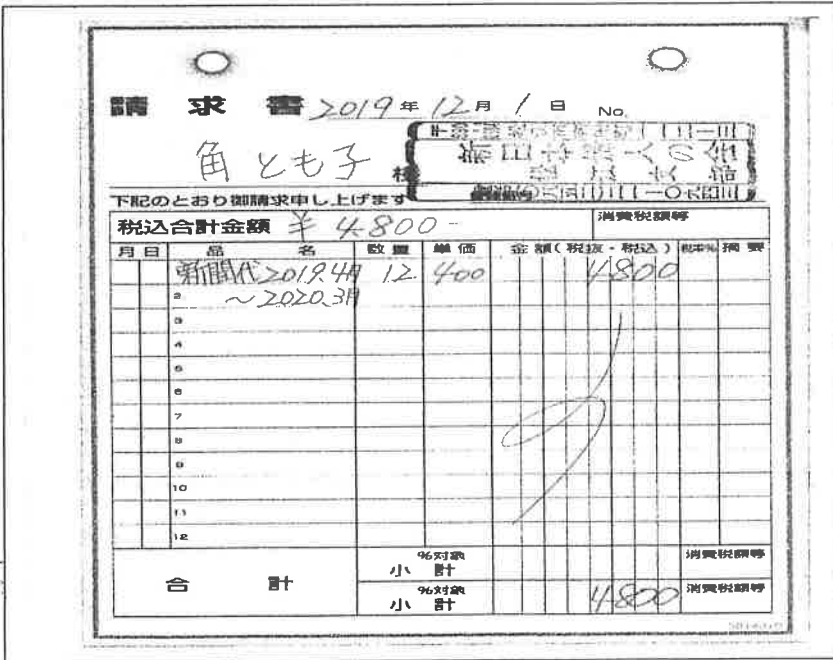 請求書 2019年12月1日 No.
角とも子 様
新日本婦人の会
支部
下記のとおり御請求申し上げます
税込合計金額 ¥4800- 消費税額等
月 日 品名 数量 単価 金額(税抜・税込) 税率% 摘要
新聞代2019.4月 12 400 4800
2 ~2020.3月
3
4
5
6
7
8
9
10
11
12
合計 %対象 小計 消費税額等
%対象 小計 4800 消費税額等